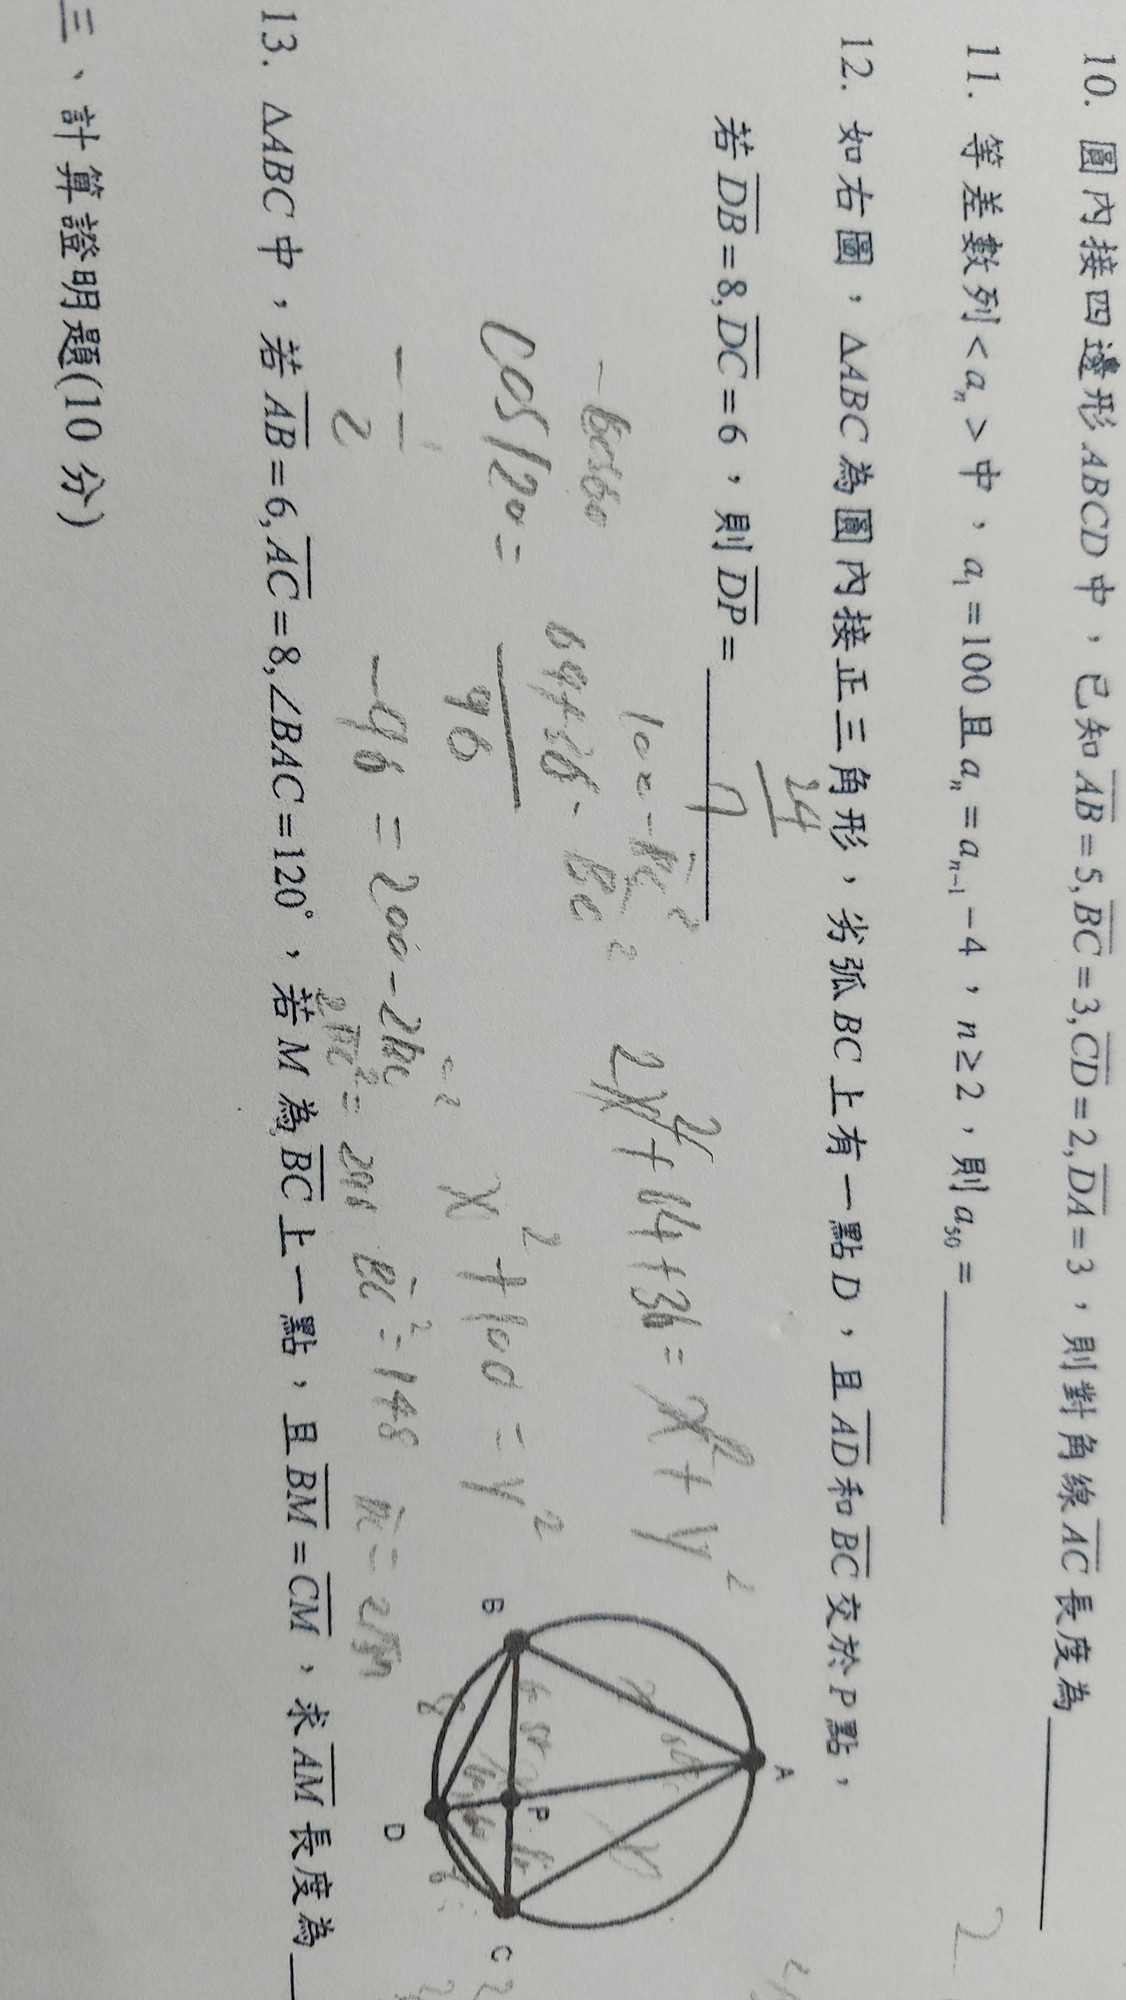 10. 圓內接四邊形ABCD中，已知AB=5,BC=3,CD=2,DA=3，則對角線AC長度為
11. 等差數列<aₙ>中，a₁=100且aₙ=aₙ₋₁-4，n≥2，則a₅₀=
12. 如右圖，△ABC為圓內接正三角形，劣弧BC上有一點D，且AD和BC交於P點，
若DB=8,DC=6，則DP=
24
7
100-BC²
2x²+64+36=x²+y²
64+36-BC²
cos120=
96
x²+100=y²
-1
2
-96=200-2BC²
2BC²=296
BC²=148
A
B
P
C
D
8
6
13. △ABC中，若AB=6,AC=8,∠BAC=120°，若M為BC上一點，且BM=CM，求AM長度為
三、計算證明題(10分)